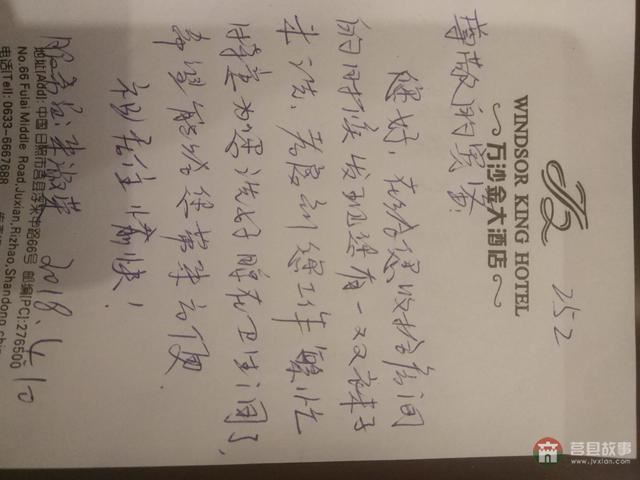 252
WINDSOR KING HOTEL
万沙金大酒店
尊敬的宾客:
您好,在给您收拾房间
的时候发现您有一双袜子
未洗,考虑到您工作繁忙
特意为您洗好晾在卫生间了,
希望能给您带来方便.
祝您居住愉快!
服务员:
2018.4.10
地址(Add): 中国日照市莒县浮来中路66号 邮编(PC):276500
No.66 Fulai Middle Road,Juxian,Rizhao,Shandong,chin
电话(Tel): 0633-6667688
莒县故事
www.jvxian.com